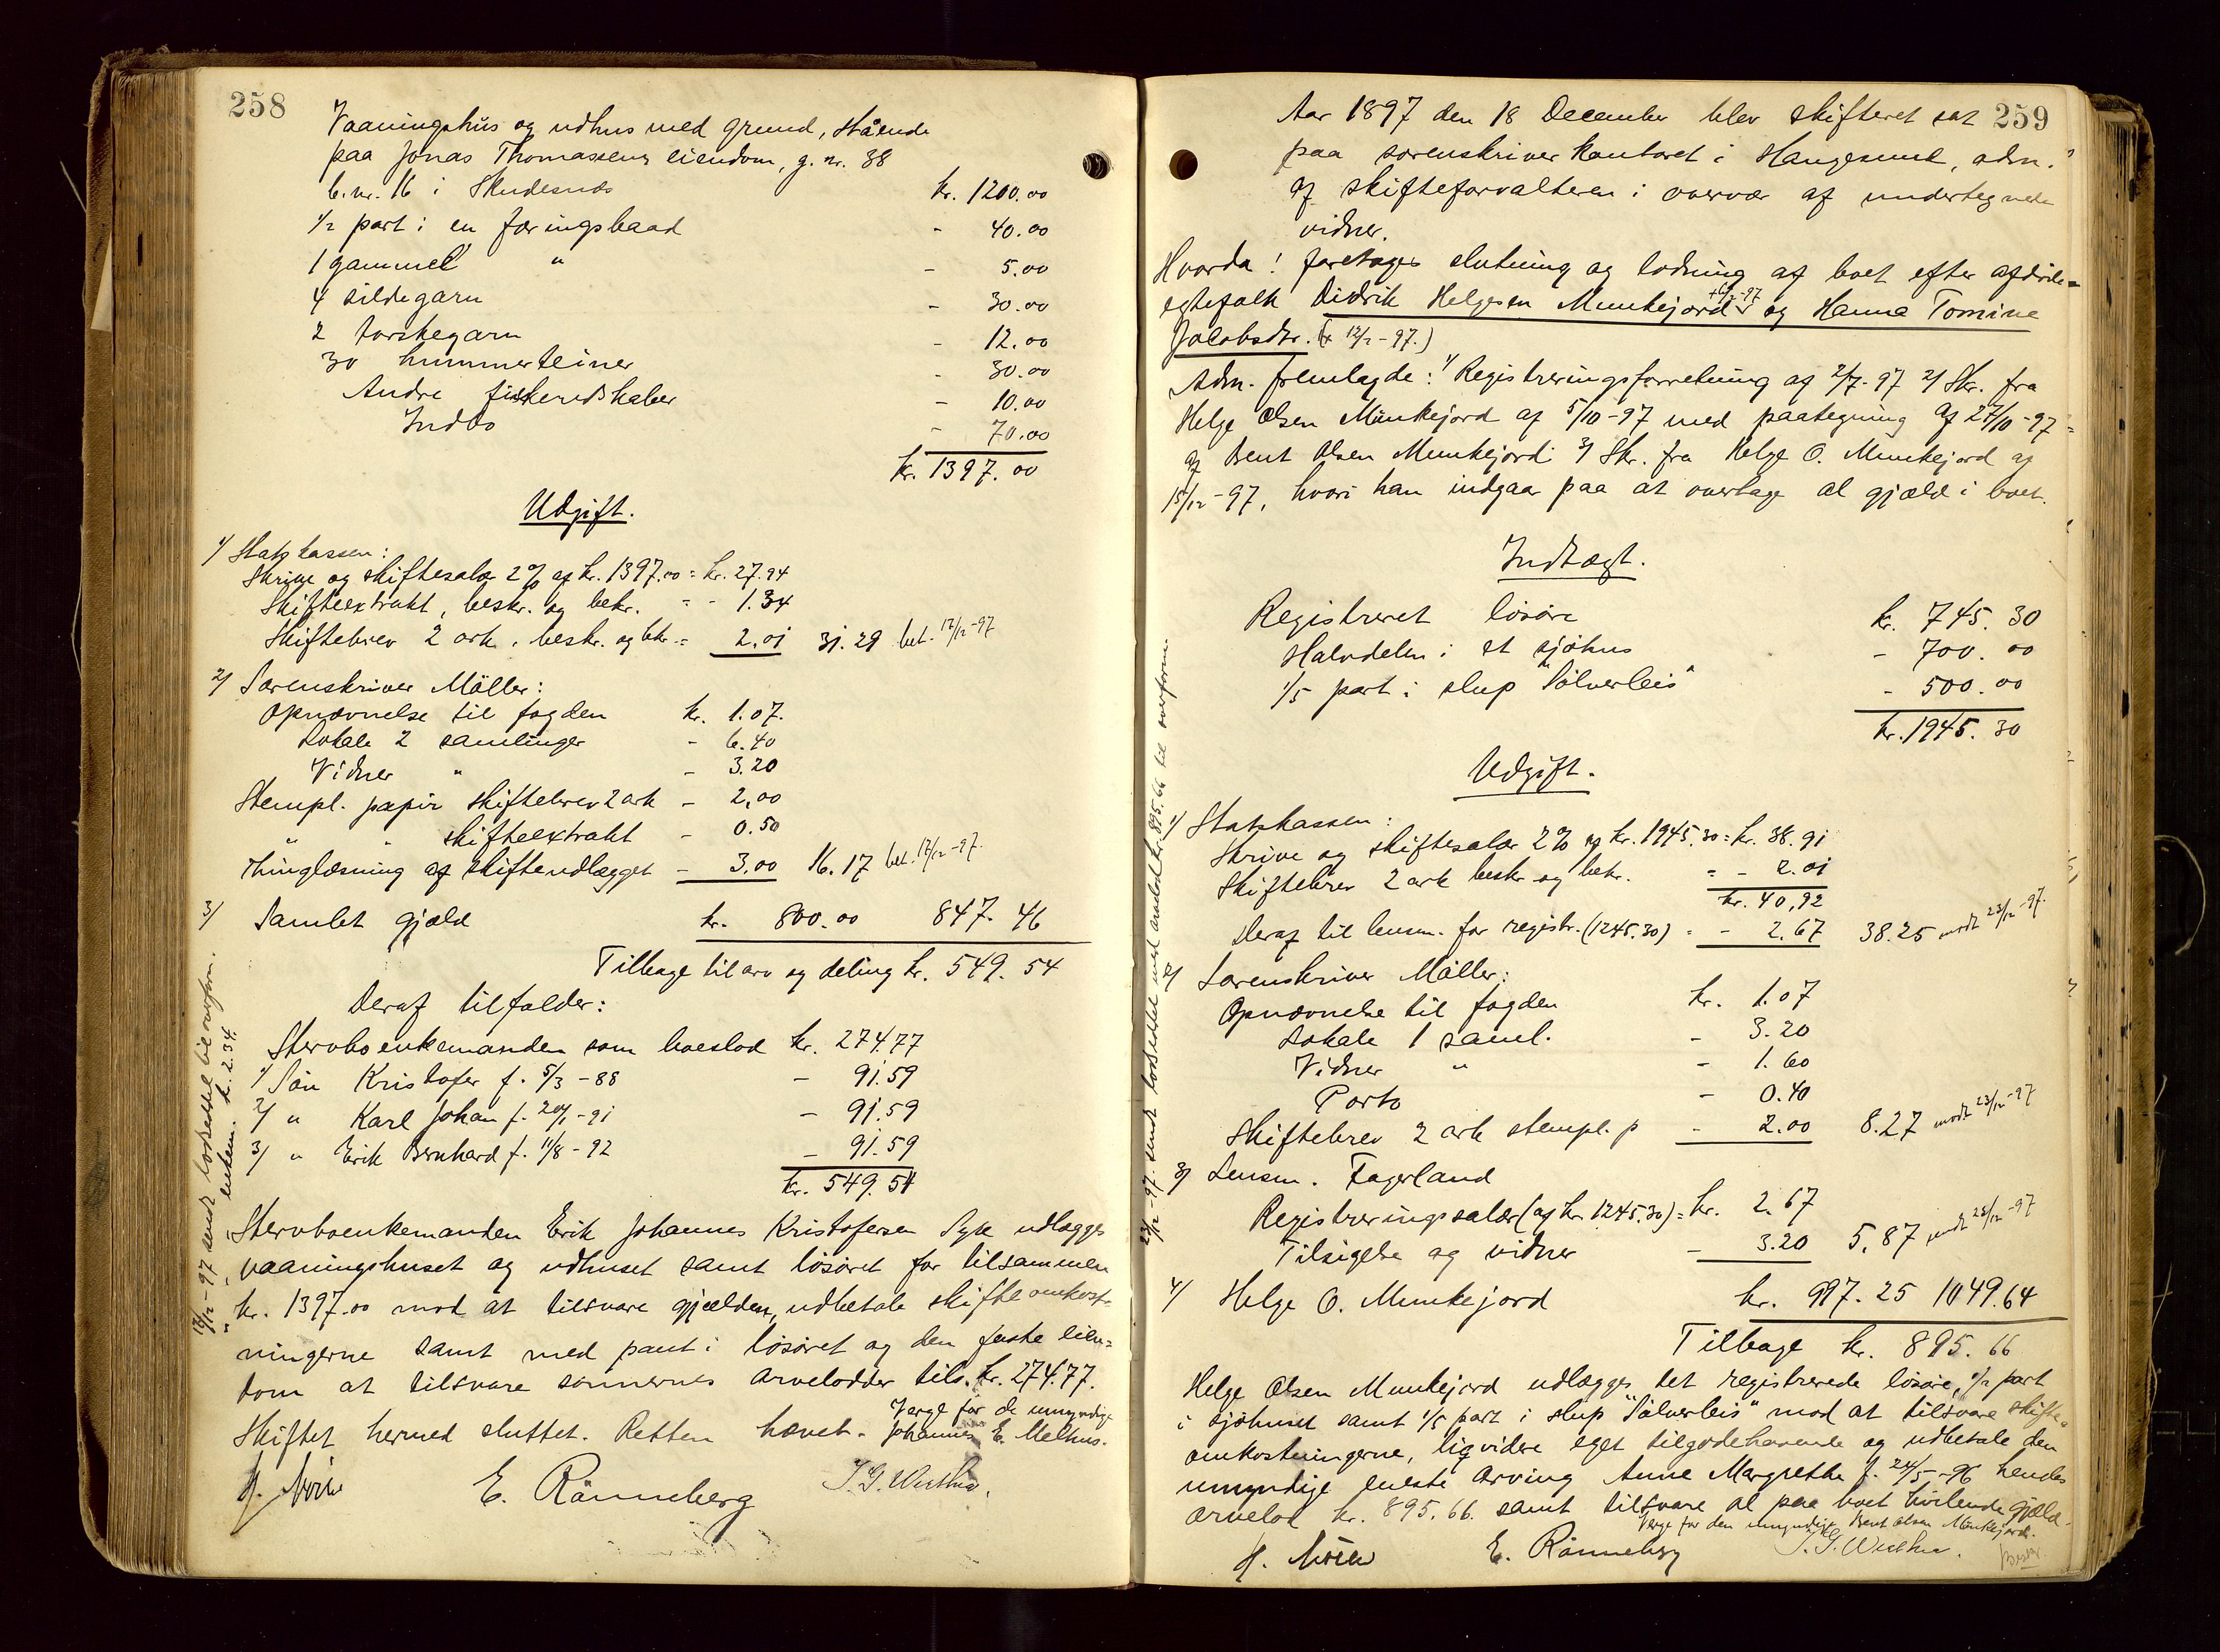 258
Vaaningshus og udhus med grund, stående
paa Jonas Thomassens eiendom, g. nr. 38
b. nr. 16 i Skudesnæs kr. 1200.00
1/2 part i en færingsbaad - 40.00
1 gammel " - 5.00
4 sildegarn - 30.00
2 torskegarn - 12.00
30 hummerteiner - 30.00
Andre fiskeredskaber - 10.00
Indbo - 70.00
kr. 1397.00
Udgift.
1/ Statskassen:
Skrive og skiftesalær 2% af kr. 1397.00 = kr. 27.94
Skifteextrakt, beskr. og bekr. = - 1.34
Skiftebrev 2 ark, beskr. og bekr. = 2.01 31.29 bet. 17/12-97
2/ Sorenskriver Möller:
Opnævnelse til fogden kr. 1.07.
Lokale 2 samlinger - 6.40
Vidner " - 3.20
Stempl. papir skiftebrev 2 ark - 2,00
" " skifteextrakt - 0.50
Thinglæsning af skifteudlægget - 3.00 16.17 bet. 17/12-97.
3/ Samlet gjæld kr. 800.00 847.46
Tilbage til arv og deling kr. 549.54
Deraf tilfalder:
Stervboenkemanden som boeslod kr. 274.77
1/ Søn Kristofer f. 5/3-88 - 91.59
2/ " Karl Johan f. 20/1-91 - 91.59
3/ " Erik Bernhard f. 11/8-92 - 91.59
kr. 549.54
Stervboenkemanden Erik Johannes Kristofersen Syre udlægges
vaaningshuset og udhuset samt løsøret for tilsammen
kr. 1397.00 mod at tilsvare gjælden, udbetale skifteomkost-
ningerne samt med pant i løsøret og den faste eien=
dom at tilsvare sønnernes arvelodder tils. kr. 274.77.
Skiftet hermed sluttet. Retten hævet.
Verge for de umyndige
Johannes E. Melhus.
E. Rønneberg
17/12-97 sendt lodseddel til overform.
" - " enkem. kr. 2.34.
259
Aar 1897 den 18 December blev skifteret sat
paa sorenskriverkontoret i Haugesund, adm.
af skifteforvalteren i overvær af undertegnede
vidner.
Hvorda! foretages slutning og lodning af boet efter afdøde
egtefolk Didrik Helgesen Munkejord og Hanna Tomine
Jacobsdtr. († 12/2-97.)
Adm. fremlagde: 1/ Registreringsforretning af 2/7-97 2/ Skr. fra
Helge Olsen Munkejord af 5/10-97 med paategning af 27/10-97
af Bent Olsen Munkejord 3/ Skr. fra Helge O. Munkejord af
15/12-97, hvori han indgaar paa at overtage al gjæld i boet.
Indtægt.
Registreret løsøre kr. 745.30
Halvdelen i et sjøhus - 700.00
1/5 part i slup "Sølverleis" - 500.00
kr. 1945.30
Udgift.
1/ Statskassen:
Skrive og skiftesalær 2% af kr. 1945.30 = kr. 38.91
Skiftebrev 2 ark beskr. og bekr. = - 2.01
kr. 40,92
Deraf til lensm. for registr. (1245.30) = - 2.67 38.25 modt. 23/12-97.
2/ Sorenskriver Möller:
Opnævnelse til fogden kr. 1.07
Lokale 1 saml. - 3.20
Vidner " - 1.60
Porto - 0.40
Skiftebrev 2 ark stempl. p - 2.00 8.27 modt. 23/12-97
3/ Lensm. Fagerland
Registreringssalær (af kr. 1245.30) = kr. 2.67
Tilsigelse og vidner - 3.20 5.87 modt. 23/12-97
4/ Helge O. Munkejord kr. 997.25 1049.64
Tilbage kr. 895.66
Helge Olsen Munkejord udlægges det registrerede løsøre, 1/2 part
i sjøhuset samt 1/5 part i slup "Sølverleis" mod at tilsvare skifte-
omkostningerne, liqvidere eget tilgodehavende og udbetale den
umyndige eneste arving Anne Margrethe f. 24/5-96 hendes
arvelod kr. 895.66 samt tilsvare al paa boet hvilende gjæld.
Verge for den umyndige Bent Olsen Munkejord.
E. Rønneberg
23/12-97 sendt lodseddel med arvelod kr. 895.66 til overform.